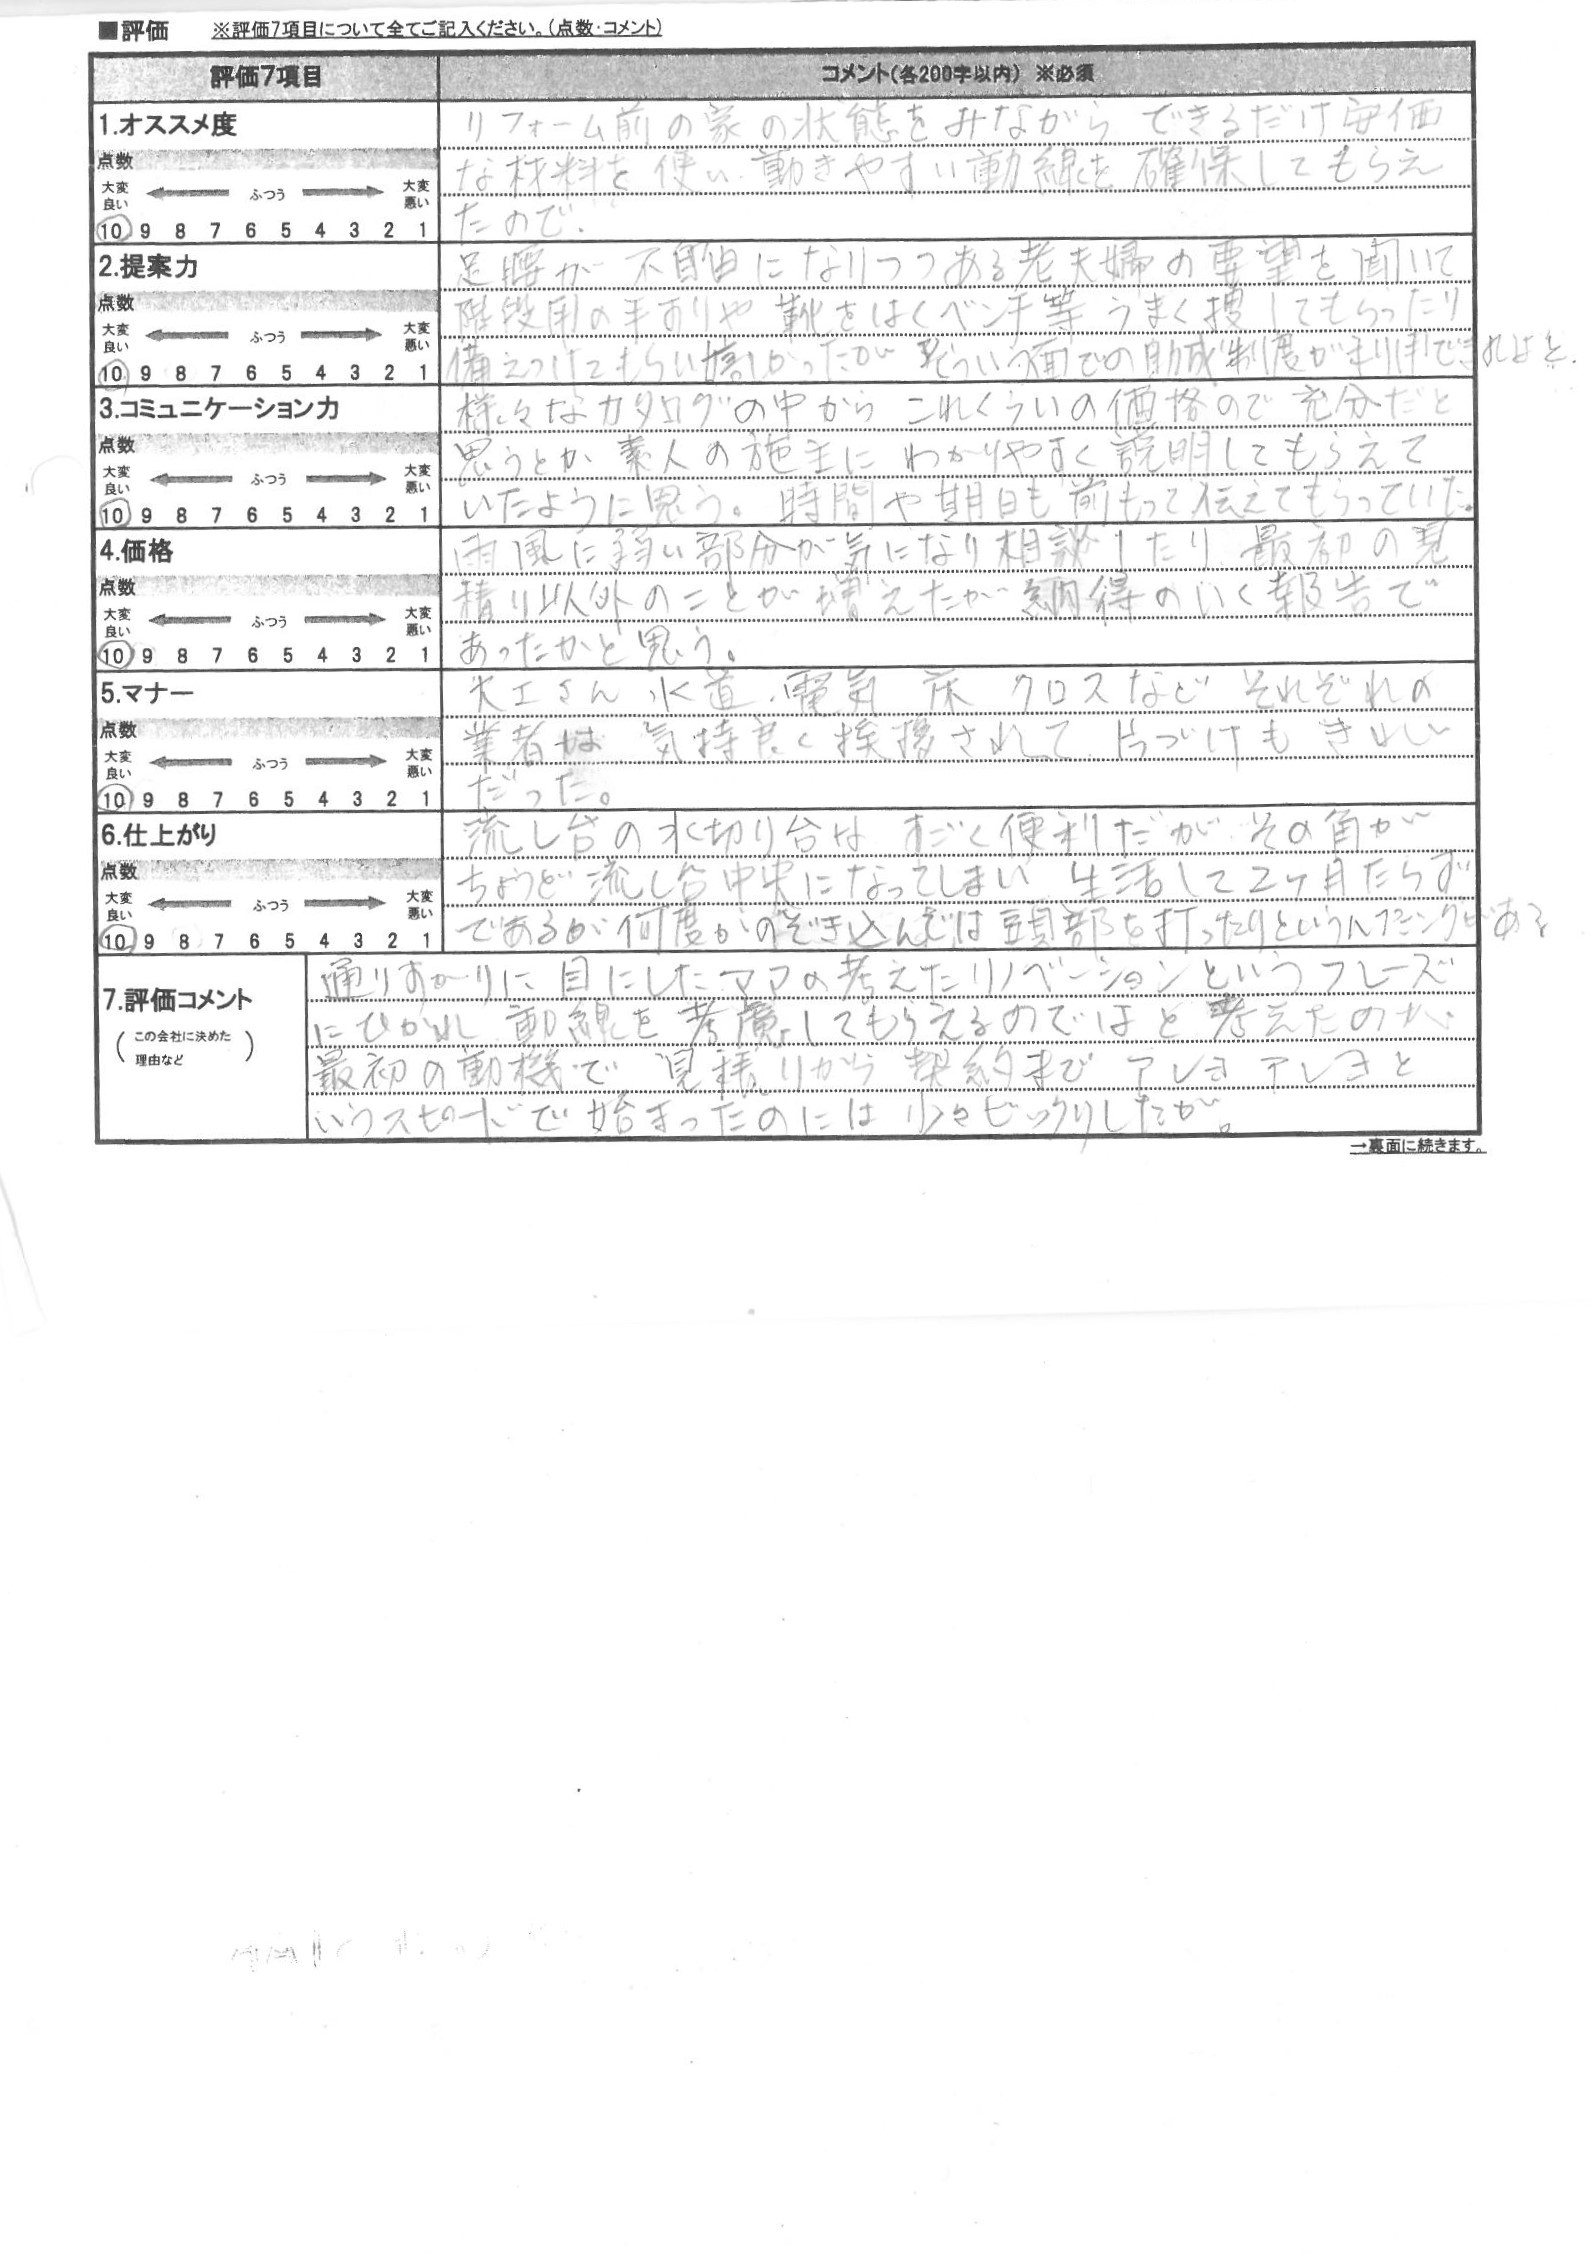 ■評価　※評価7項目について全てご記入ください。(点数・コメント)
評価7項目　コメント(各200字以内) ※必須
1.オススメ度
点数
大変良い　ふつう　大変悪い
10 9 8 7 6 5 4 3 2 1
リフォーム前の家の状態をみながら できるだけ安価
な材料を使い、動きやすい動線を確保してもらえ
たので。
2.提案力
点数
大変良い　ふつう　大変悪い
10 9 8 7 6 5 4 3 2 1
足腰が不自由になりつつある老夫婦の要望を聞いて
階段用の手すりや 靴をはくベンチ等 うまく捜してもらったり
備えつけてもらい嬉しかったが そういう面での助成制度が利用できればよと.
3.コミュニケーション力
点数
大変良い　ふつう　大変悪い
10 9 8 7 6 5 4 3 2 1
様々なカタログの中から これくらいの価格ので 充分だと
思うとか 素人の施主に わかりやすく説明してもらえて
いたように思う。時間や期日も前もって伝えてもらっていた。
4.価格
点数
大変良い　ふつう　大変悪い
10 9 8 7 6 5 4 3 2 1
雨風に弱い部分が気になり相談したり、最初の見
積り以外のことが増えたが 納得のいく報告で
あったかと思う。
5.マナー
点数
大変良い　ふつう　大変悪い
10 9 8 7 6 5 4 3 2 1
大工さん 水道、電気 床 クロスなど それぞれの
業者は 気持良く挨拶されて 片づけも きれい
だった。
6.仕上がり
点数
大変良い　ふつう　大変悪い
10 9 8 7 6 5 4 3 2 1
流し台の水切り台は すごく便利だが その角が
ちょうど流し台中央になってしまい 生活して2ヶ月たらず
であるが何度かのぞき込んでは頭部を打ったりというハプニングがある
7.評価コメント
(この会社に決めた理由など)
通りすがりに 目にしたママの考えたリノベーションというフレーズ
にひかれ 動線を考慮してもらえるのではと 考えたのが、
最初の動機で 見積りから 契約まで アレヨアレヨと
いうスピードで始まったのには少々ビックリしたが。
→裏面に続きます。